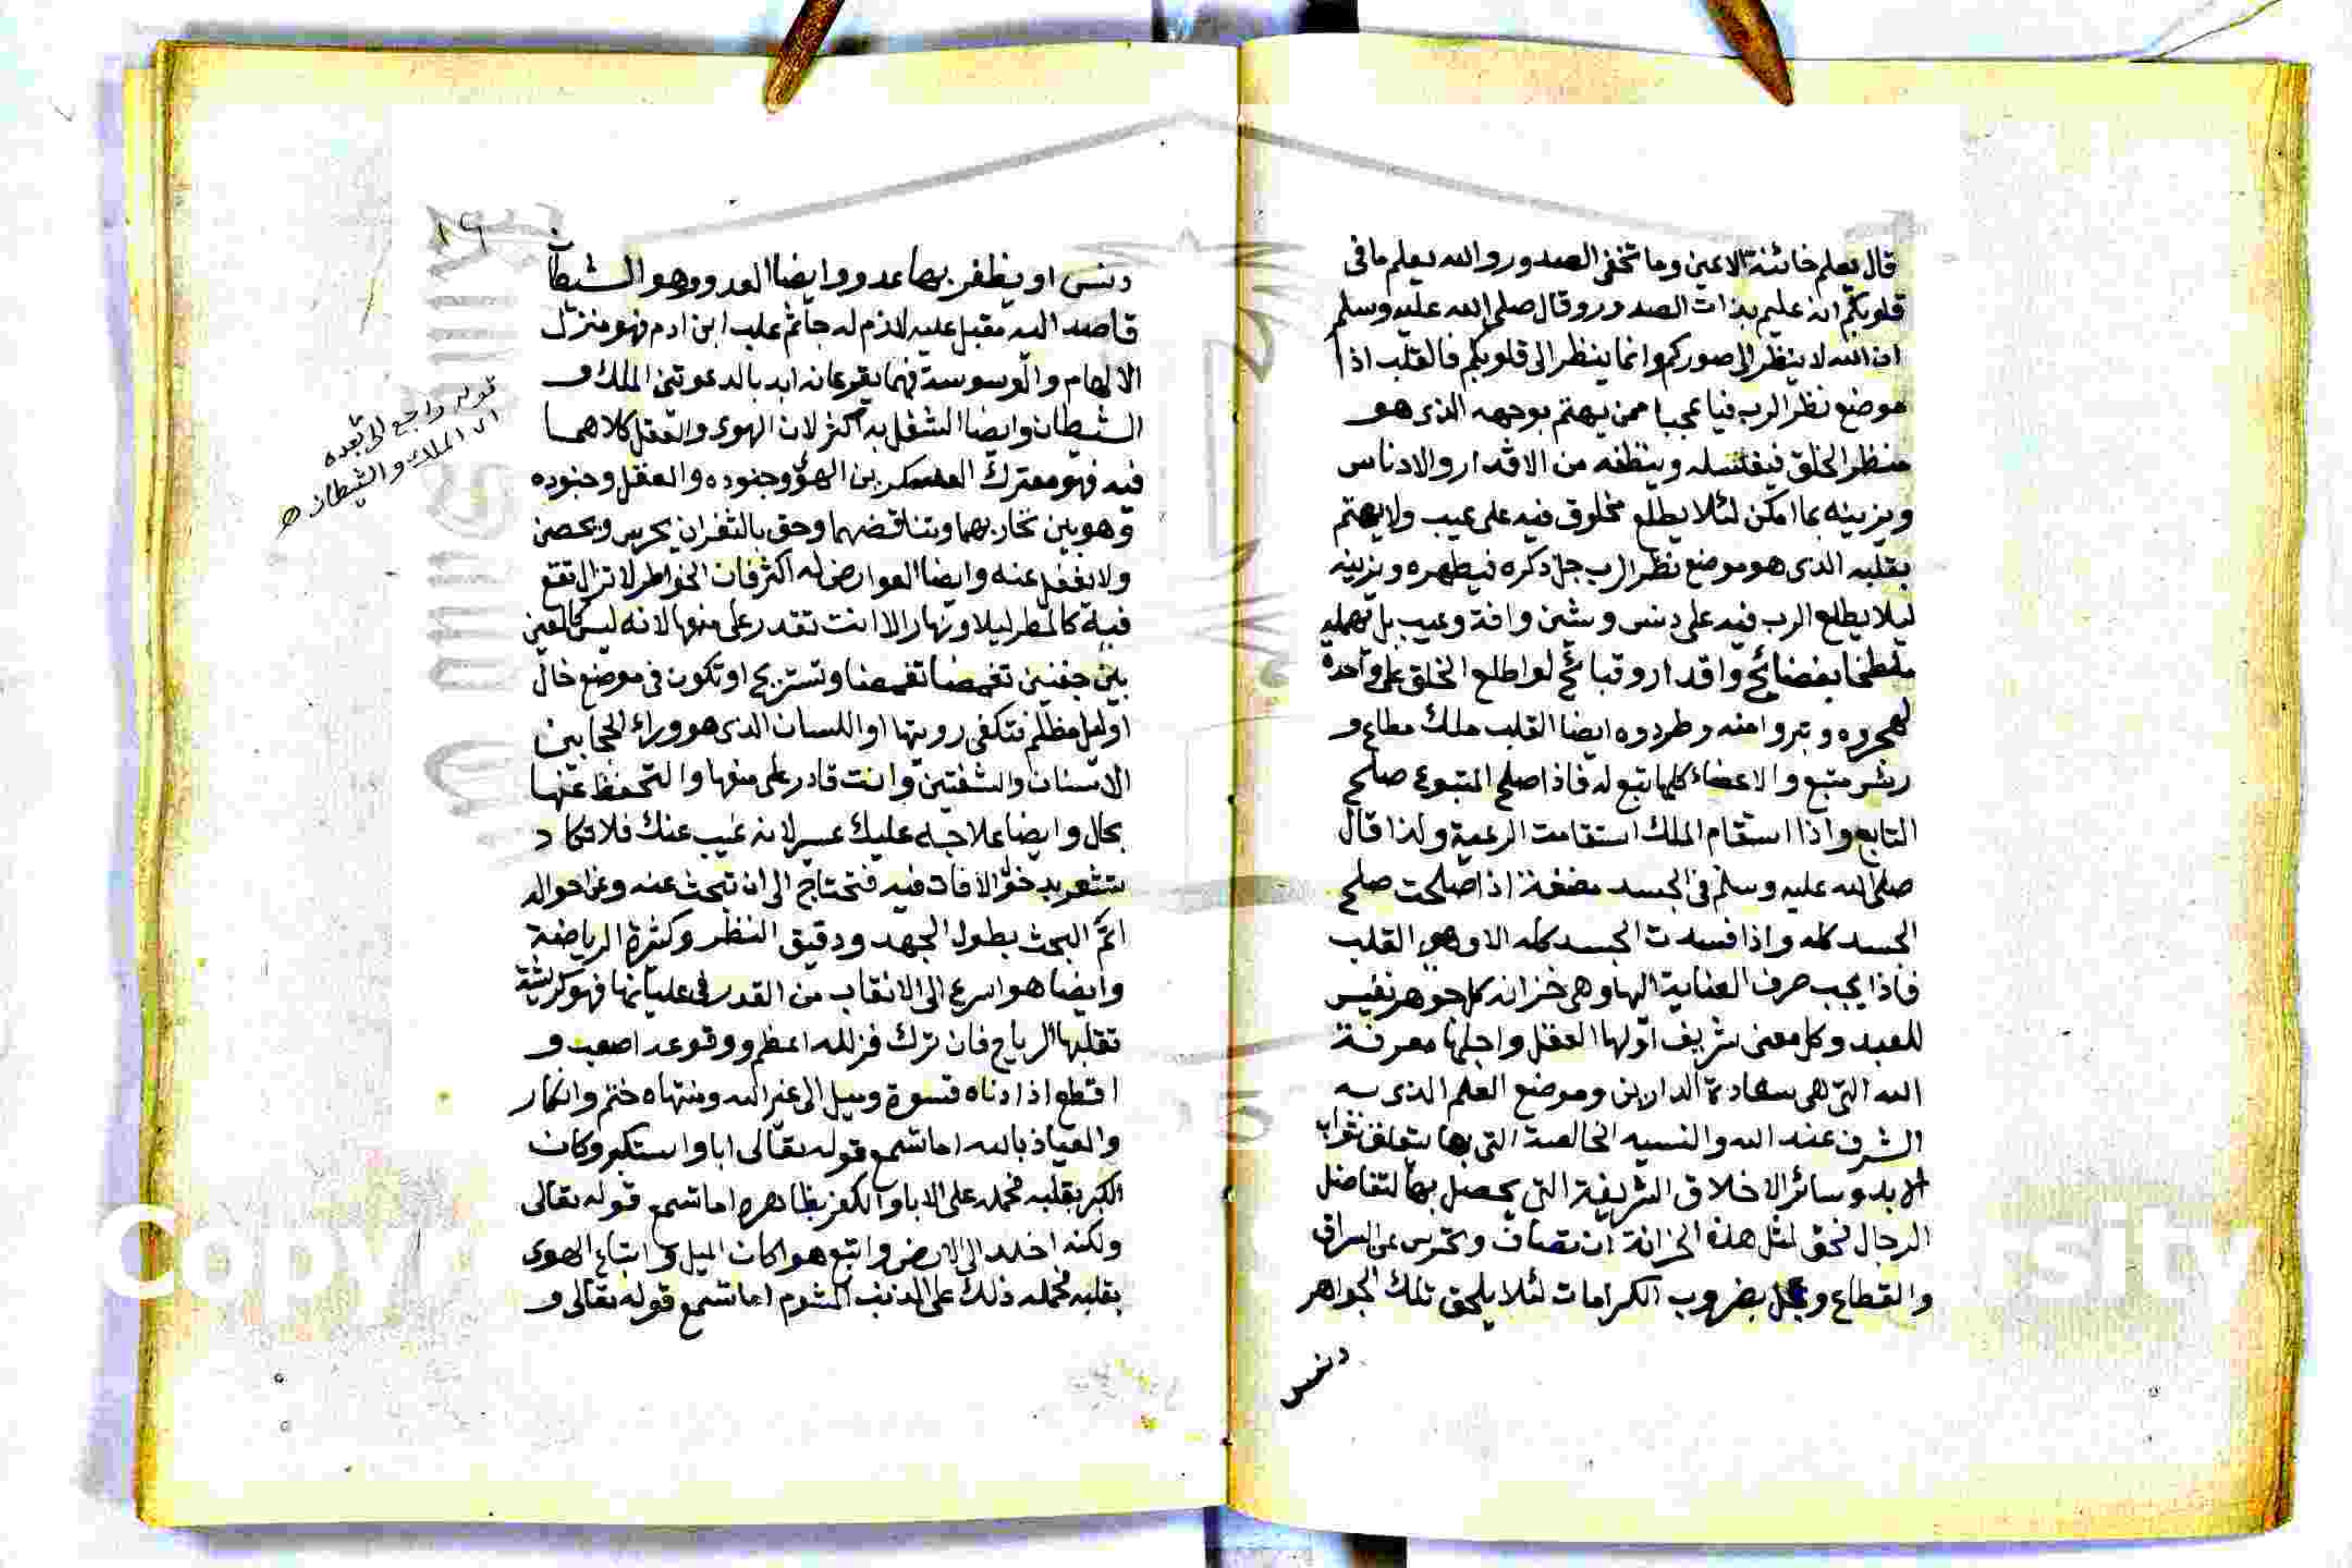 قال يعلم خائنة الاعين وما تخفى الصدور والله يعلم ما فى
قلوبكم انه عليم بذات الصدور وقال صلى الله عليه وسلم
ان الله لا ينظر الى صوركم وانما ينظر الى قلوبكم فالقلب اذا
موضع نظر الرب فيا عجبا ممن يهتم بوجهه الذى هو
منظر الخلق فيغسله وينظفه من الاقدار والادناس
ويزينه بما امكن لئلا يطلع مخلوق فيه على عيب ولا يهتم
بقلبه الذى هو موضع نظر الرب جل ذكره فيطهره ويزينه
ليلا يطلع الرب فيه على دنس وشين وافة وعيب بل يهمله
ملطخا بفضائح واقدار وقبائح لو اطلع الخلق على واحدة
لهجروه وتبروا منه وطردوه ايضا القلب ملك مطاع و
ريئس متبع والاعضاء كلها تبع له فاذا صلح المتبوع صلح
التابع واذا استقام الملك استقامت الرعية ولذا قال
صلى الله عليه وسلم فى الجسد مضغة اذا صلحت صلح
الجسد كله واذا فسدت الجسد كله الا وهى القلب
فاذا يجب صرف العناية اليها وهى خزانه كل جوهر نفيس
للعبد وكل معنى شريف اولها العقل واجلها معرفة
الله التى هى سعادة الدارين وموضع العلم الذى به
الشرف عند الله والنسيه الخالصة التى بها يتعلق ثواب
الابد وسائر الاخلاق الشريفة التى يحصل بها تفاضل
الرجال فحق لمثل هذه الخزانة ان تصان وتحرس عن السراق
والقطاع وتجل بضروب الكرامات لئلا يلحق تلك الجواهر
دنس
١٩
دنس او يظفر بها عدو وايضا العدو وهو الشيطان
قاصد اليه مقبل عليه لازم له جاثم علب ابن ادم فهو منزل
الالهام والوسوسة فهما يقرعانه ابد بالدعوتين الملك و
الشيطان وايضا الشغل به اكثر لان الهوى والعقل كلاهما
فيه فهو معترك العسكرين الهوى وجنوده والعقل وجنوده
وهو بين تحاربهما وتناقضهما وحق بالثغر ان يحرس ويحصن
ولا يغفل عنه وايضا العوارض له اكثر فان الخواطر لا تزال تقع
فيه كالمطر ليلا ونهارا لا انت تقدر على منعها لانه ليس كالعين
بين جفنين تغمضا تغمضا وتستريح او تكون فى موضع خال
او ليل مظلم فتكفى رويتها او اللسان الذى هو وراء الحجابين
الاسنان والشفتين وانت قادر على منعها والتحفظ عنها
بحال وايضا علاجه عليك عسر لانه غيب عنك فلا تكاد
تشعر به الافات فيه فتحتاج الى ان تبحث عنه وعن احواله
اتم البحث بطول الجهد ودقيق النظر وكثرة الرياضة
وايضا هو اسرع الى الانقلاب من القدر فى غليانها فهو كريشة
تقلبها الرياح فان ترك فزلله اعظم ووقوعه اصعب و
اقطع اذ ادناه قسوة وميل الى غير الله ومنتهاه ختم وانكار
والعياذ بالله اما تسمع قوله تعالى ابا واستكبر وكان
الكبر بقلبه فحمله على الابا والكفر بظاهره اما تسمع قوله تعالى
ولكنه اخلد الى الارض واتبع هواه كان الميل واتباع الهوى
بقلبه فحمله ذلك على الذنب المشوم اما تسمع قوله تعالى و
قوله راجع الى بعده
اى الملك والشيطان